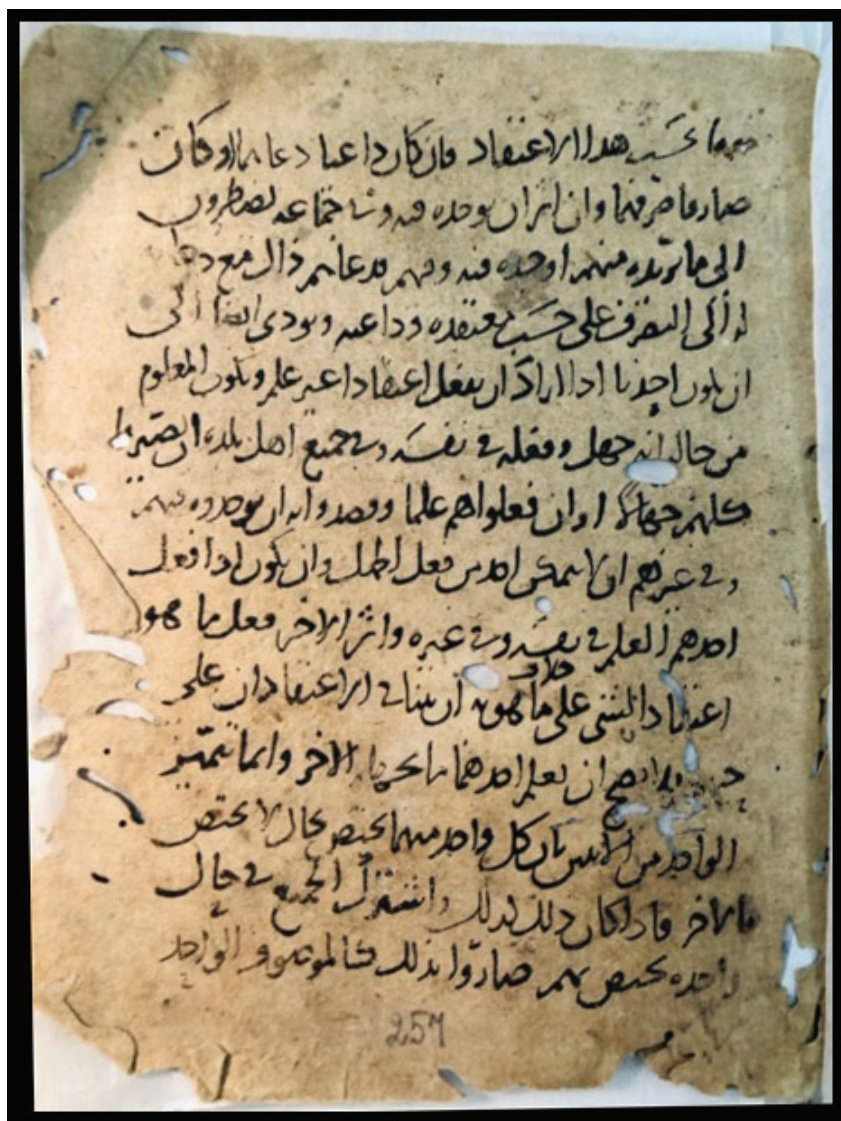 بحسب هذا الاعتقاد فان كان داعيا دعاهم او كان
صارفا صرفهما وان اثر ان يوجده فيه وفي جماعة يضطرون
الى ما يريده منهم اوجده فيه وفيهم فدعاهم ذلك مع
الى التصرف على حسب معتقده وداعيه ويودي ايضا الى
ان يكون احدنا اذا اراد ان يفعل اعتقادا غير علم ويكون المعلوم
من حاله انه جهل وفعله في نفسه وفي جميع اهل بلده ان يصير
كلهم جهالا وان فعلوا هم علما وقصدوا به ان يوجدوه فيهم
وفي غيرهم ان لا يتمكن احد من فعل الجهل وان يكون اذا فعل
احدهم العلم في نفسه وفي غيره واثر الاخر فعل ما هو
اعتقاد الشي على خلاف ما هو به ان يتنافى الاعتقادان على
ان يعلم احدهما الاخر وانما يتميز
الواحد من الاثنين بان كل واحد منهما يختص بحال لا يختص
بها الاخر فاذا كان ذلك كذلك واشترك الجميع في حال
واحدة يختص بهم صاروا بذلك كالموصوف الواحد
257